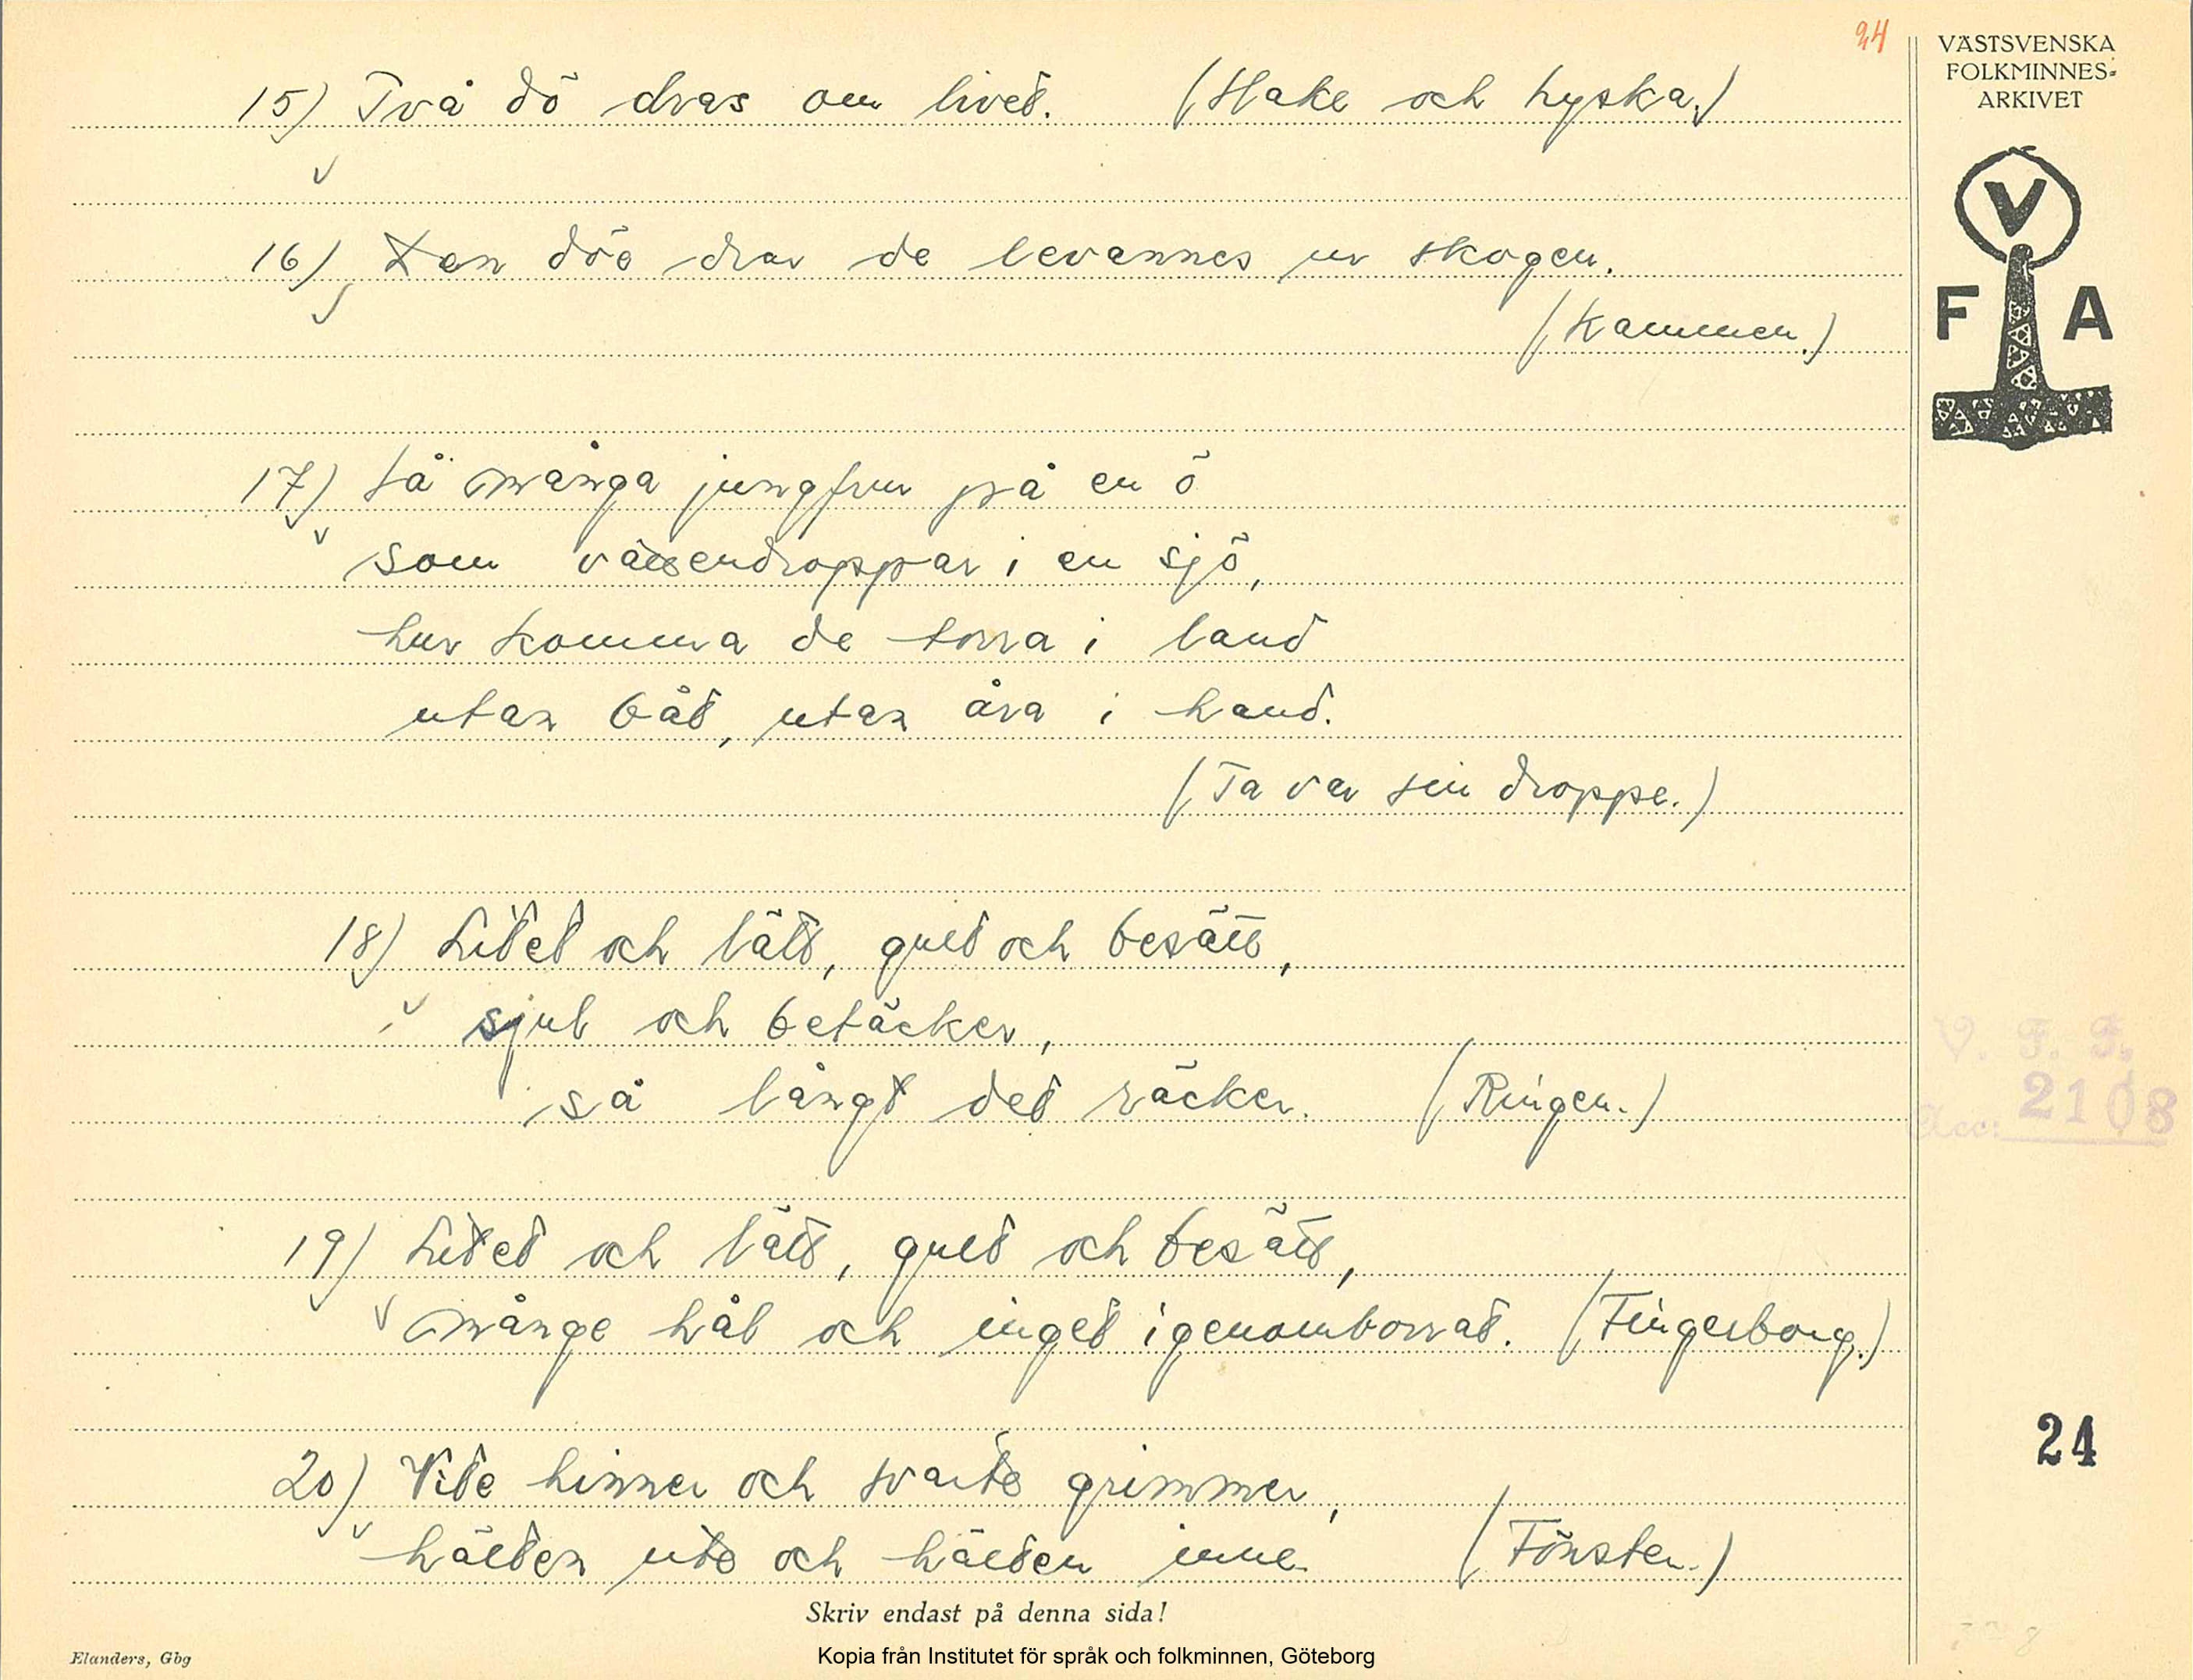 24
VÄSTSVENSKA
FOLKMINNES-
ARKIVET
V
F A
15) Två dö dras om livet. (Hake och hyska.)
16) Den döe drar de levannes ur skogen.
(Kammen.)
17) Så många jungfrur på en ö
som vattendroppar i en sjö,
hur komma de torra i land
utan båt, utan åra i hand.
(Ta var sin droppe.)
18) Litet och lätt, gult och besätt,
sjul och betäcker,
så långt det räcker. (Ringen.)
19) Litet och lätt, gult och besätt,
månge hål och inget igenomborrat. (Fingerborg.)
20) Vite hinner och svarte grimmer,
hälften ute och hälften inne. (Fönster.)
V. F. F.
Acc: 2103
24
Skriv endast på denna sida!
Elanders, Gbg
Kopia från Institutet för språk och folkminnen, Göteborg